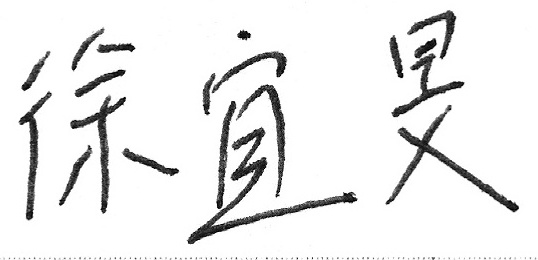 徐宜旻